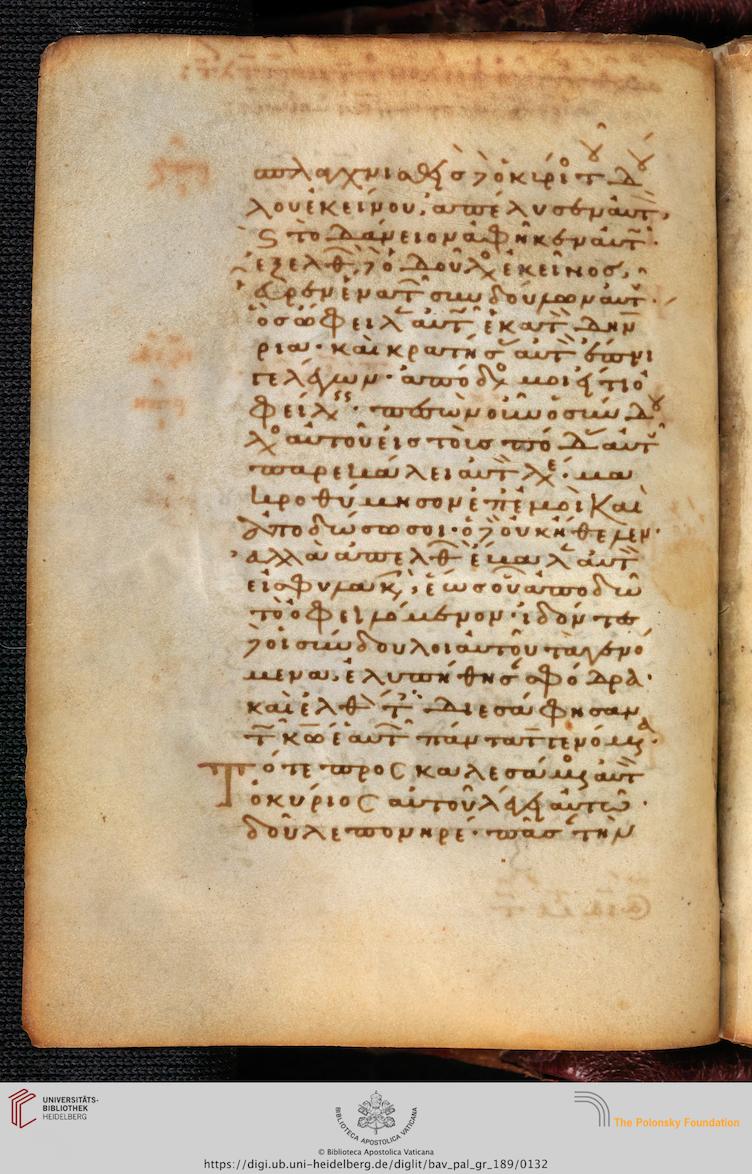 σπλαγχνισθεὶς δὲ ὁ κύριος τοῦ δού
λου ἐκείνου, ἀπέλυσεν αὐτόν,
καὶ τὸ δάνειον ἀφῆκεν αὐτῷ.
ἐξελθὼν δὲ ὁ δοῦλος ἐκεῖνος,
εὗρεν ἕνα τῶν συνδούλων αὐτοῦ.
ὃς ὤφειλεν αὐτῷ ἑκατὸν δηνά
ρια. καὶ κρατήσας αὐτὸν ἔπνι
γε λέγων. ἀπόδος μοι εἴ τι ὀ
φείλεις. πεσὼν οὖν ὁ σύνδου
λος αὐτοῦ εἰς τοὺς πόδας αὐτοῦ
παρεκάλει αὐτὸν λέγων. μα
κροθύμησον ἐπ' ἐμοὶ καὶ
ἀποδώσω σοι. ὁ δὲ οὐκ ἤθελεν.
ἀλλὰ ἀπελθὼν ἔβαλεν αὐτὸν
εἰς φυλακήν, ἕως οὗ ἀποδῷ
τὸ ὀφειλόμενον. ἰδόντες
δὲ οἱ σύνδουλοι αὐτοῦ τὰ γενό
μενα, ἐλυπήθησαν σφόδρα.
καὶ ἐλθόντες διεσάφησαν
τῷ κω ἑαυτῶν πάντα τὰ γενόμενα.
Τότε προσκαλεσάμενος αὐτὸν
ὁ κύριος αὐτοῦ λέγει αὐτῷ.
δοῦλε πονηρέ. πᾶσαν τὴν
UNIVERSITÄTS-
BIBLIOTHEK
HEIDELBERG
BIBLIOTECA APOSTOLICA VATICANA
The Polonsky Foundation
© Biblioteca Apostolica Vaticana
https://digi.ub.uni-heidelberg.de/diglit/bav_pal_gr_189/0132